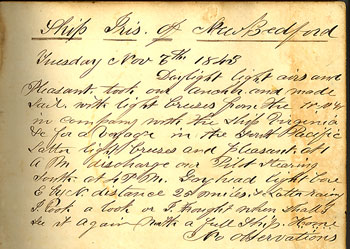 Ship Iris. of New Bedford
Tuesday Nov 7th 1848
Daylight light airs and
Pleasant took our anchor and made
Sail with light breezes from the
in company with the Ship Virginia
&c for a voyage in the South Pacific
Latter light breeses and pleasant at
2 PM discharge our Pilot stearing
South at 4 P.M. Gayhead light bore
distance 25 miles.
I took a look & I thought when shall I
see it again with a full Ship.
No observations